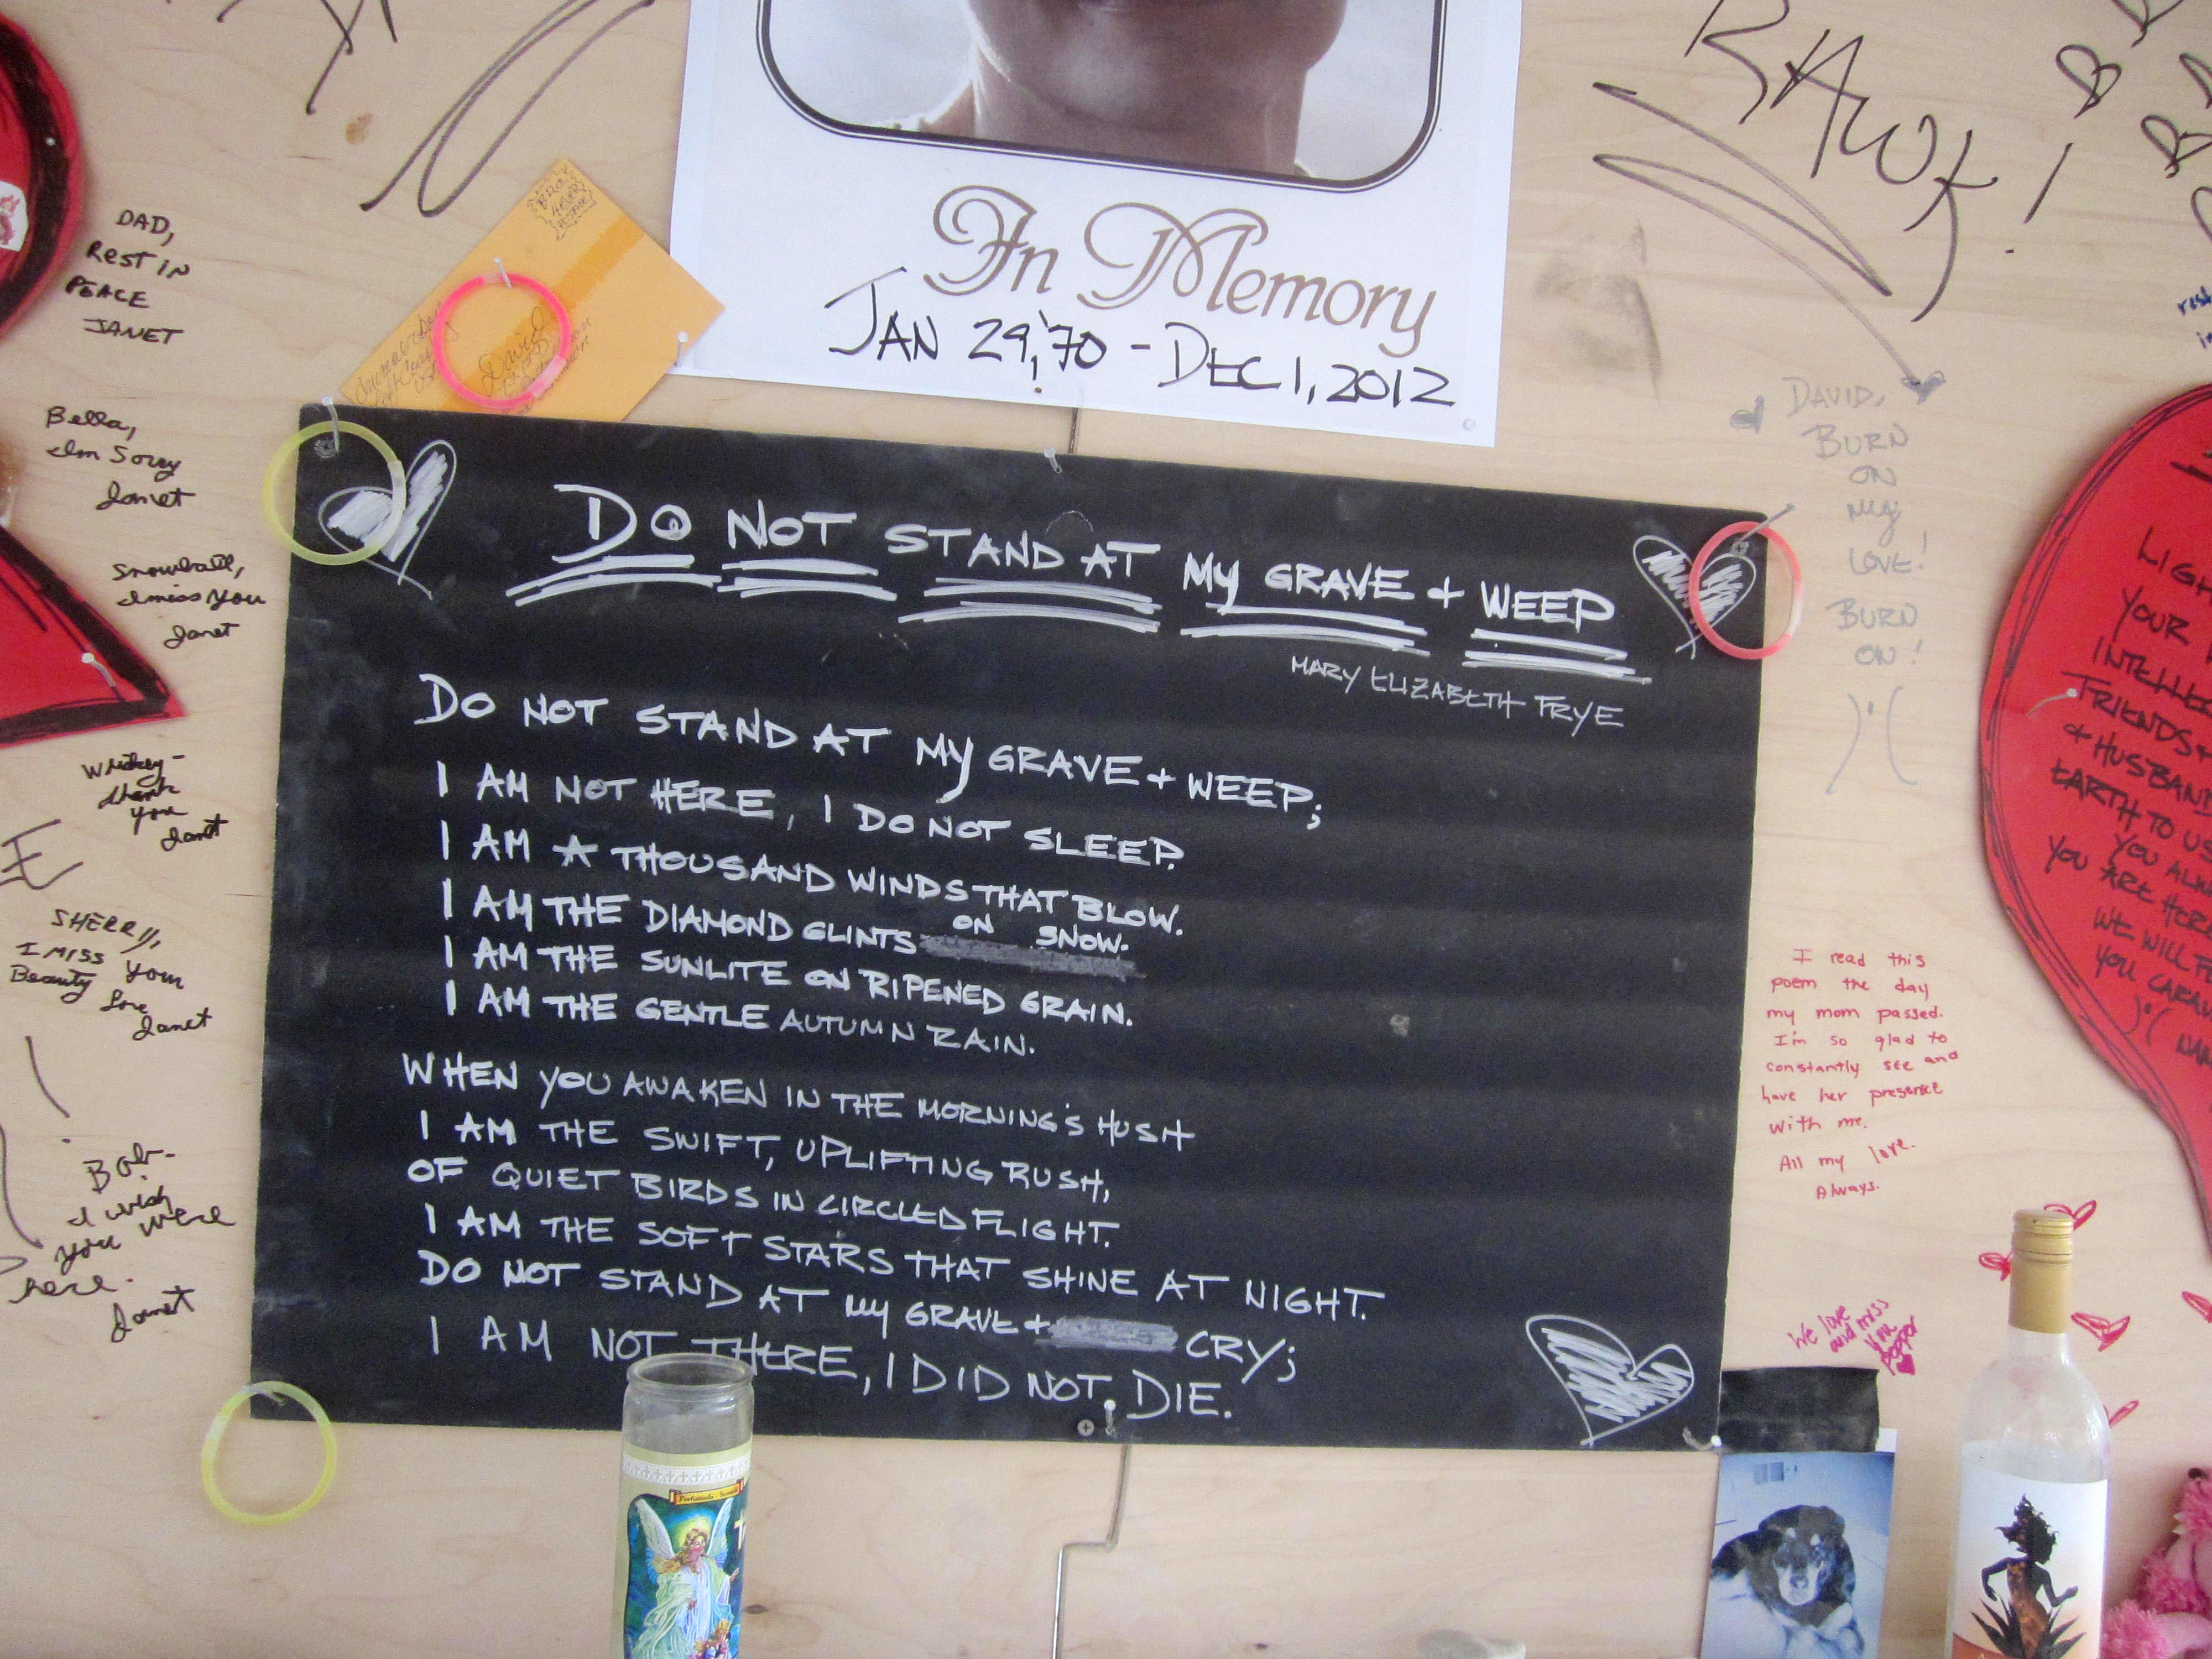 RAWK!
In Memory
JAN 29, '70 - DEC 1, 2012
DAD,
REST IN
PEACE
JANET
BRO
4EVER
David
Bella,
Im Sorry
Janet
Snowball,
I miss you
Janet
Whiskey-
thank
you
Janet
SHERRY,
I MISS Your
Beauty
Love
Janet
Bob-
I wish
you were
here.
Janet
DO NOT STAND AT MY GRAVE + WEEP
MARY ELIZABETH FRYE
DO NOT STAND AT MY GRAVE + WEEP;
I AM NOT HERE, I DO NOT SLEEP.
I AM A THOUSAND WINDS THAT BLOW.
I AM THE DIAMOND GLINTS ON SNOW.
I AM THE SUNLITE ON RIPENED GRAIN.
I AM THE GENTLE AUTUMN RAIN.
WHEN YOU AWAKEN IN THE MORNING'S HUSH
I AM THE SWIFT, UPLIFTING RUSH,
OF QUIET BIRDS IN CIRCLED FLIGHT.
I AM THE SOFT STARS THAT SHINE AT NIGHT.
DO NOT STAND AT MY GRAVE + CRY;
I AM NOT THERE, I DID NOT DIE.
DAVID,
BURN
ON
MY
LOVE!
BURN
ON!
)'(
I read this
poem the day
my mom passed.
I'm so glad to
constantly see and
have her presence
with me.
All my love.
Always.
We love
and miss
you
Popper
YOUR
FRIENDS
EARTH TO US
YOU ARE HERE
WE WILL
)'(